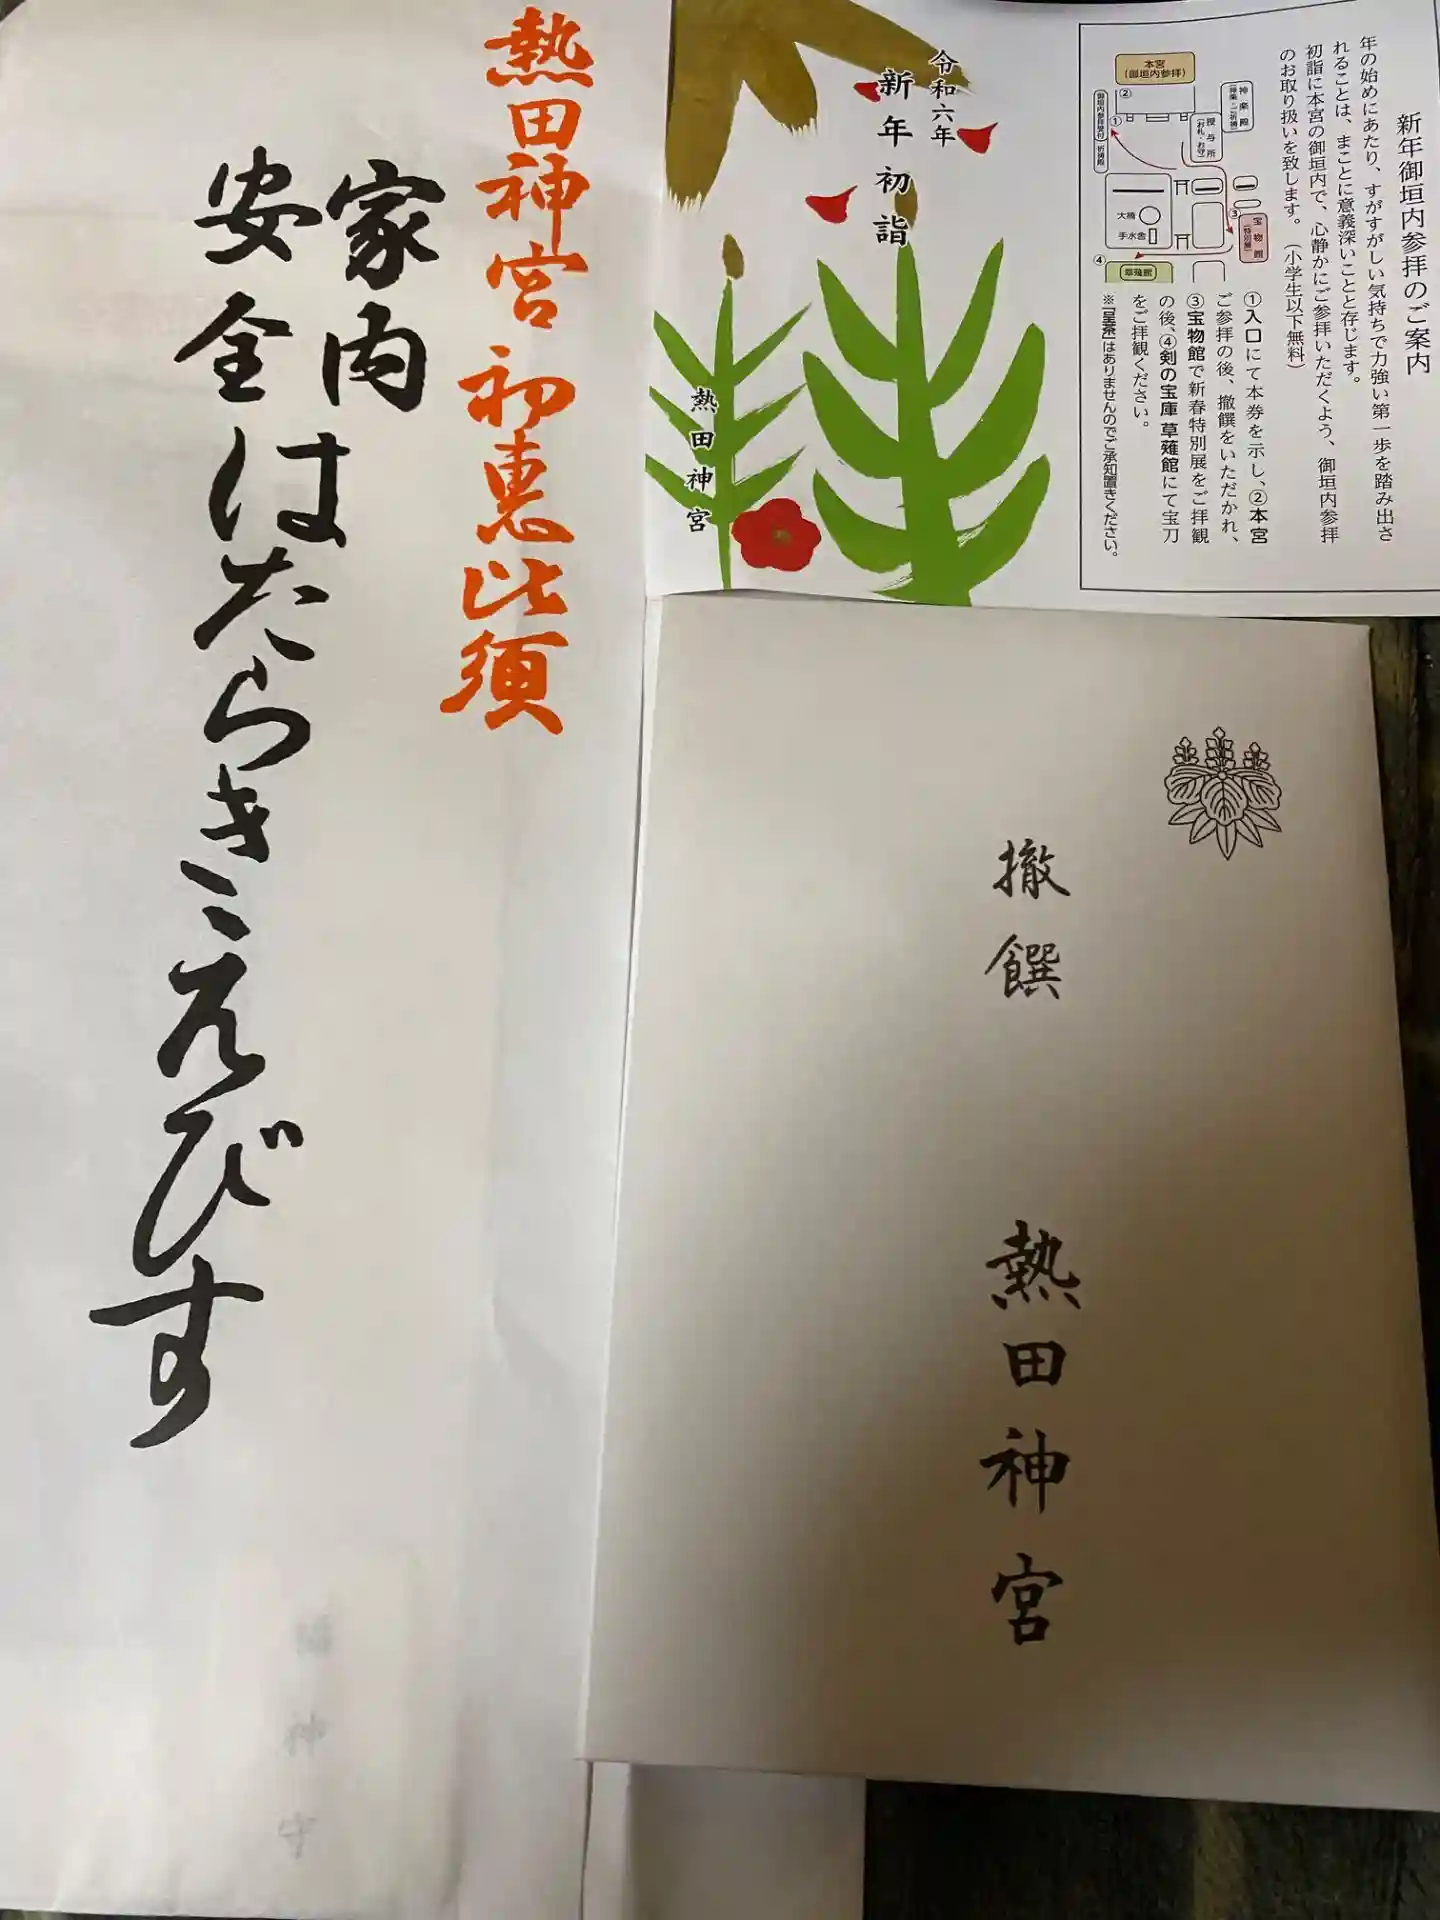 熱田神宮 初恵比須
家内
安全
はたらきえびす
令和六年
新年初詣
熱田神宮
新年御垣内参拝のご案内
年の始めにあたり、すがすがしい気持ちで力強い第一歩を踏み出さ
れることは、まことに意義深いことと存じます。
初詣に本宮の御垣内で、心静かにご参拝いただくよう、御垣内参拝
のお取り扱いを致します。（小学生以下無料）
本宮
（御垣内参拝）
②
①
神楽殿
授与所
（お札・お守）
大楠
手水舎
③
宝物館
（特別展）
④
草薙館
①入口にて本券を示し、②本宮
ご参拝の後、撤饌をいただかれ、
③宝物館で新春特別展をご拝観
の後、④剣の宝庫 草薙館にて宝刀
をご拝観ください。
※「呈茶」はありませんのでご承知置きください。
撤饌
熱田神宮